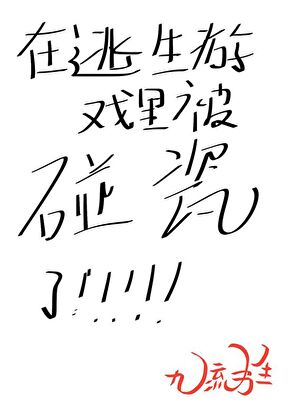 在逃生游
戏里被
碰瓷
了!!!!!!
九流书生